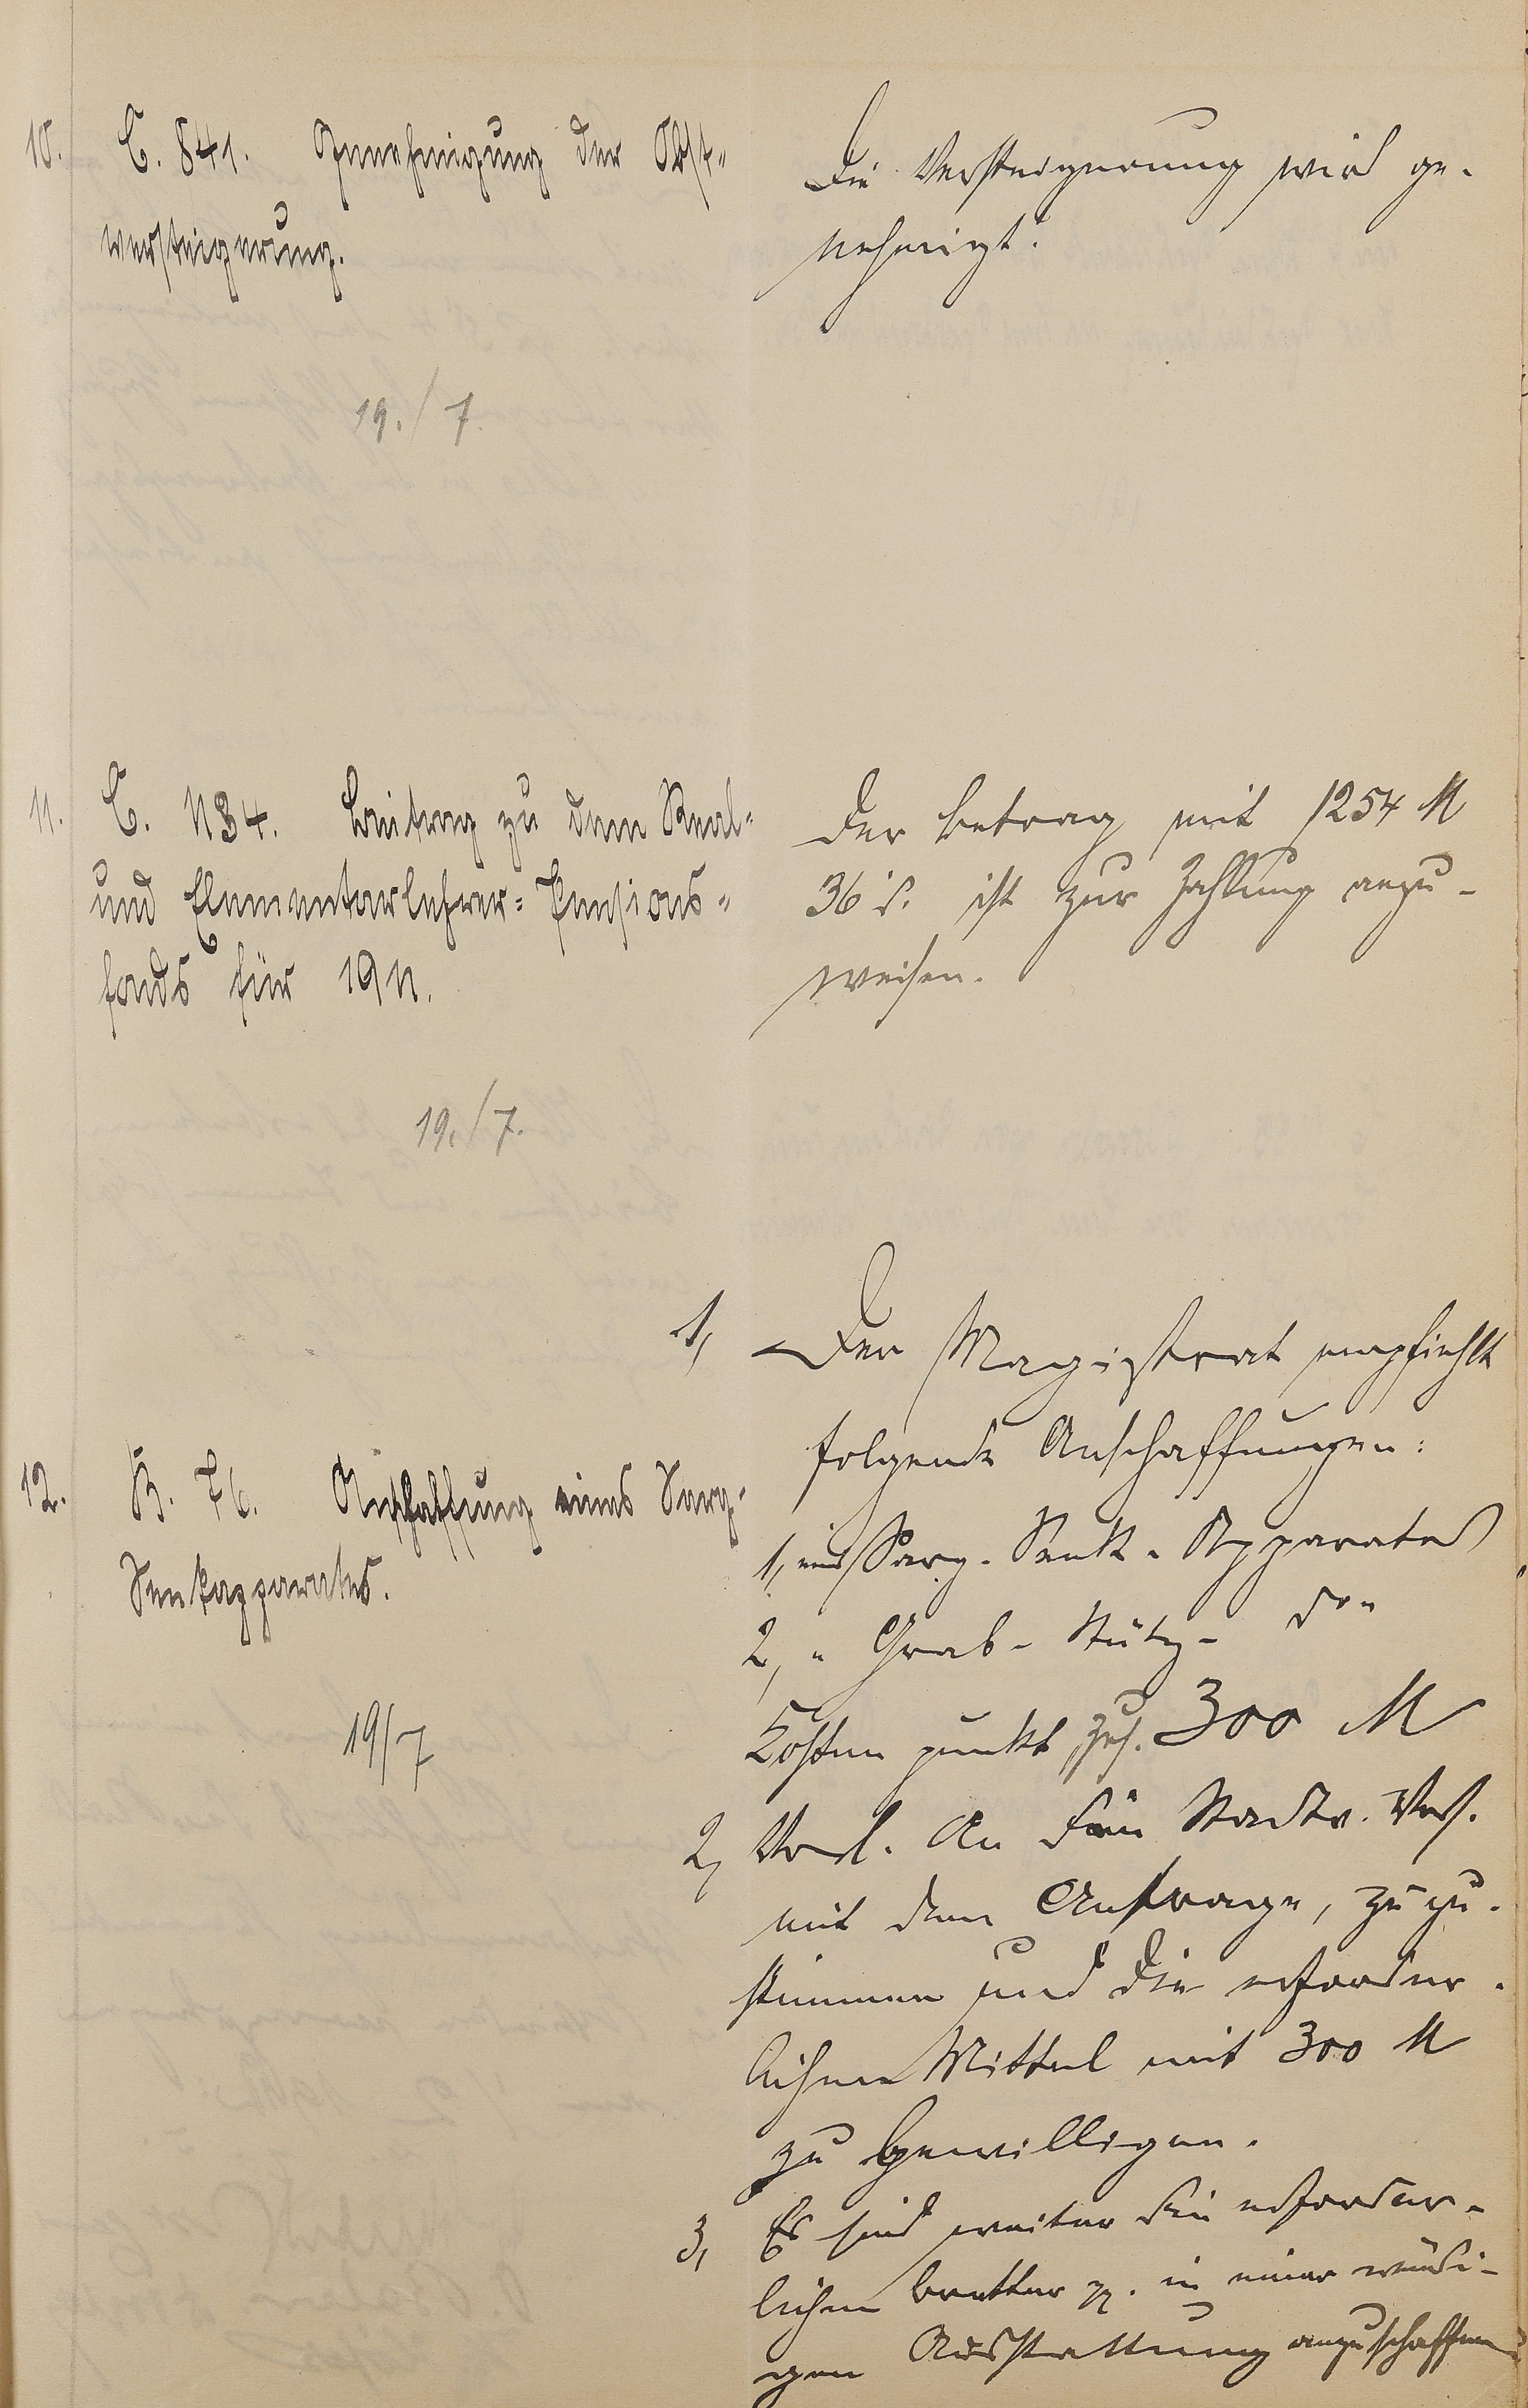 10. C. 841. Genehmigung der Obst-
versteigerung.
19./7.
Die Versteigerung wird ge-
nehmigt.
11. C. 1134. Beitrag zu dem Real-
und Elementarlehrer-Pensions-
fonds für 1911.
19./7.
Der Betrag mit 1254 M
36 ₰. ist zur Zahlung anzu-
weisen.
12. B. 76. Anschaffung eines Sarg-
Senkapparates.
19/7
1, Der Magistrat empfiehlt
folgende Anschaffungen:
1, eines Sarg-Senk-Apparates
2, " Grab-Stütz- do
Kostenpunkt zus. 300 M
2, Vorl. An die Stadtv. Vers.
mit dem Antrage, zuzu-
stimmen und die erforder-
lichen Mittel mit 300 M
zu bewilligen.
3, Es sind weiter die erforder-
lichen Bretter pp. in einer würdi-
gen Ausstattung anzuschaffen